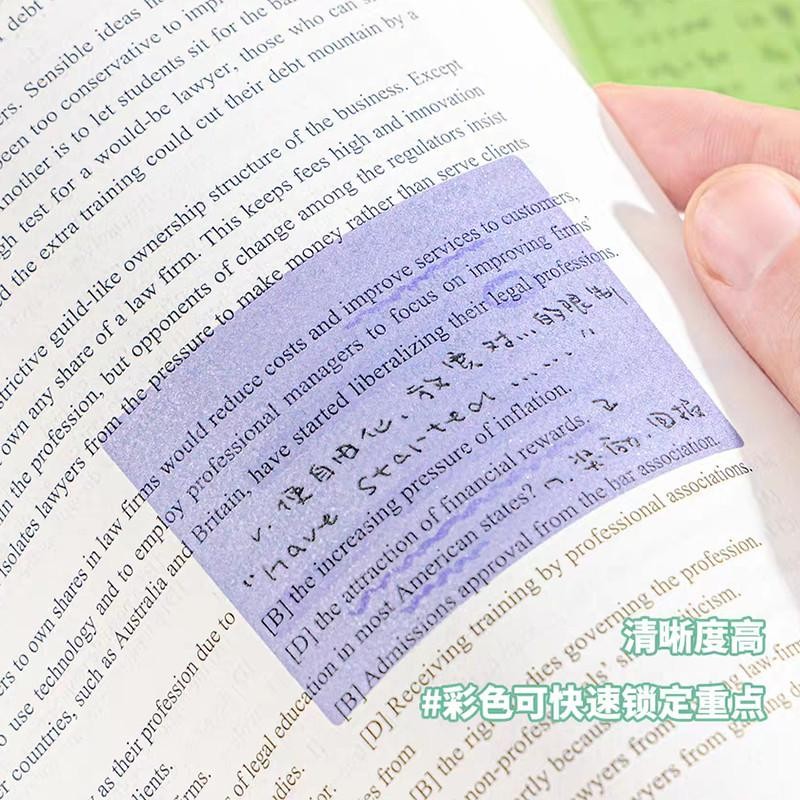 debt
ers. Sensible ideas
been too conservative to
nother is to let students sit for the
gh test for a would-be lawyer, those who can
d the extra training could cut their debt mountain by a
strictive guild-like ownership structure of the business. Except
own any share of a law firm. This keeps fees high and innovation
in the profession, but opponents of change among the regulators insist
isolates lawyers from the pressure to make money rather than serve clients
ers to own shares in law firms would reduce costs and improve services to customers,
to use technology and to employ professional managers to focus on improving firms'
er countries, such as Australia and Britain, have started liberalizing their legal professions.
v. 使自由化、放宽对…的限制
"have started ……"
[B] the increasing pressure of inflation.
[D] the attraction of financial rewards.
n. 奖励、回报
as their profession due to
of legal education in most American states?
[B] Admissions approval from the bar association.
[D] Receiving training by professional associations.
clients.
firms.
[B] the
governing the profession.
non-profes
criticism.
from
law-firm
清晰度高
#彩色可快速锁定重点